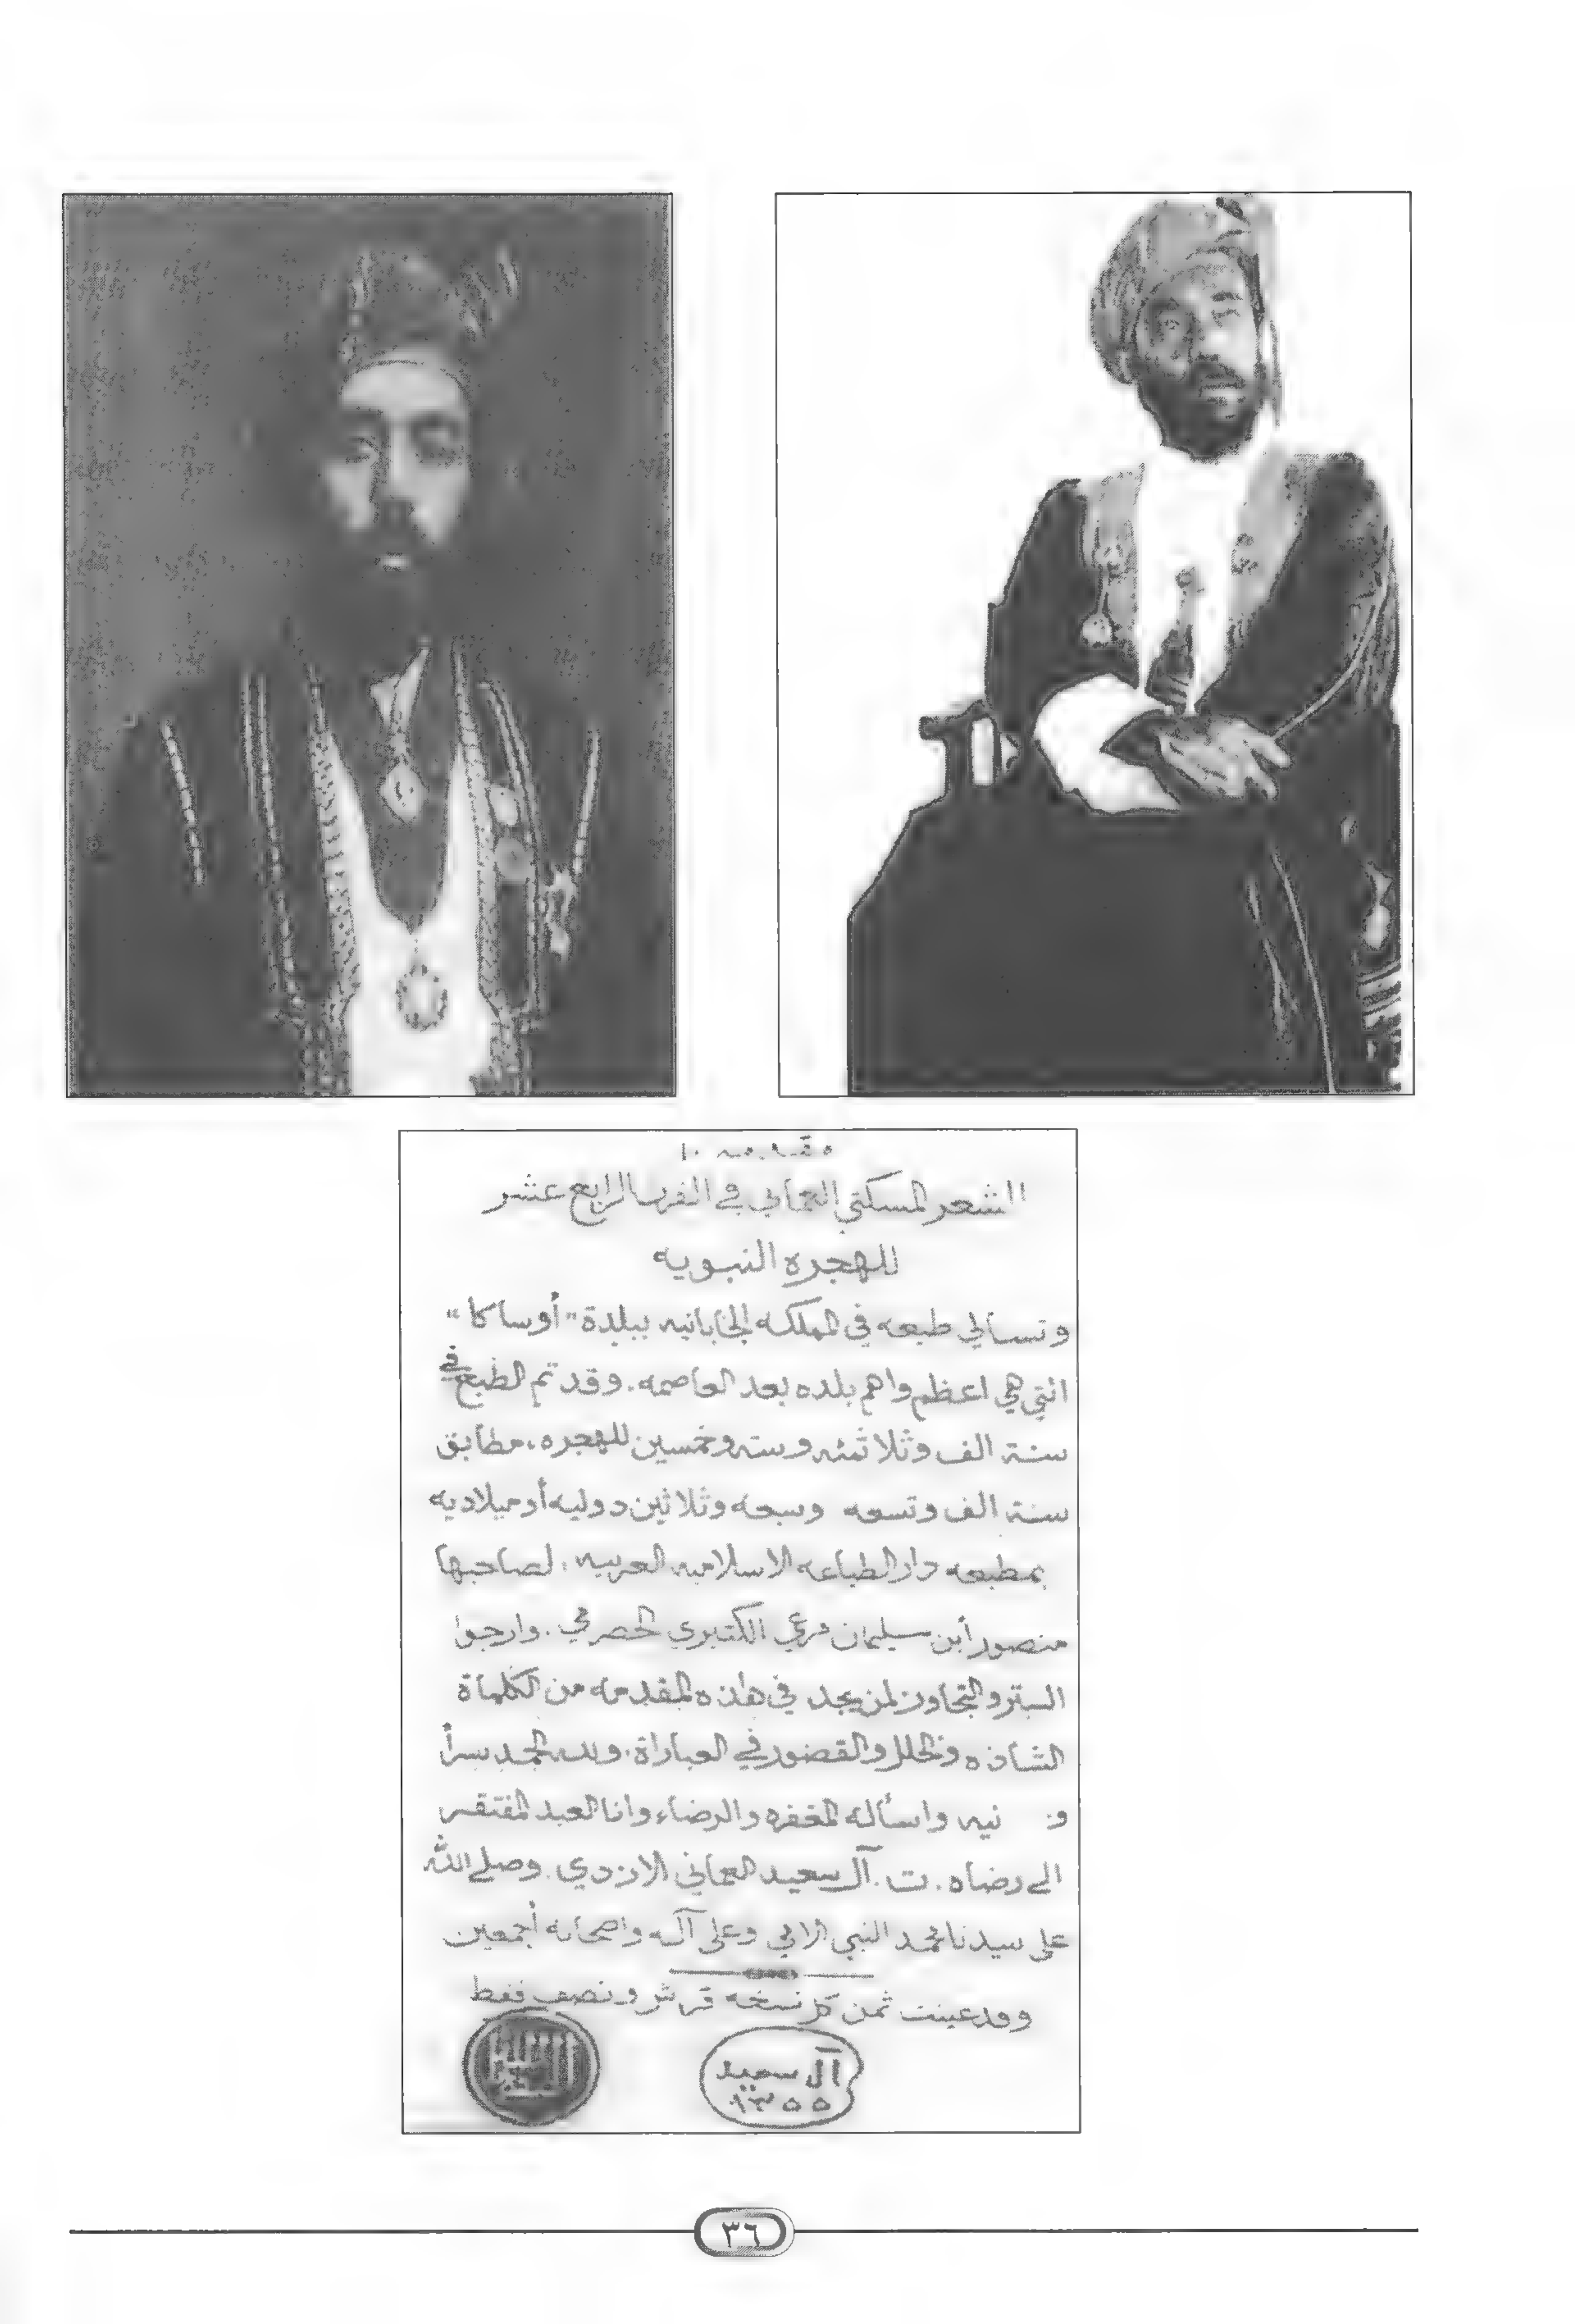 الشعر المسكتي العماني في القرن الرابع عشر
للهجره النبويه
وتسالي طبعه في المملكه الجابانيه ببلدة "أوساكا"
التي هي اعظم واهم بلده بعد العاصمه. وقد تم الطبع في
سنة الف وثلاثمئه وسته وخمسين للهجره، مطابق
سنة الف وتسعه وسبعه وثلاثين دوليه أو ميلاديه
بمطبعه دار الطباعه الاسلاميه العربيه، لصاحبها
منصور أبن سليمان مرعي الكثيري الحضرمي. وارجوا
الستر والتجاوز لمن يجد في هاذه المقدمه من الكلماة
الشاذه والخلل والقصور في العباراة، ولله الحمد سراً
نيه واسأله المغفره والرضاء وانا العبد المفتقر
الى رضاه. ت. آل سعيد العماني الازدي. وصلى الله
على سيدنا محمد النبي الامي وعلى آله واصحابه أجمعين
وقد عينت ثمن كل نسخه قرش ونصف فقط
آل سعيد
١٣٥٥
٣٦